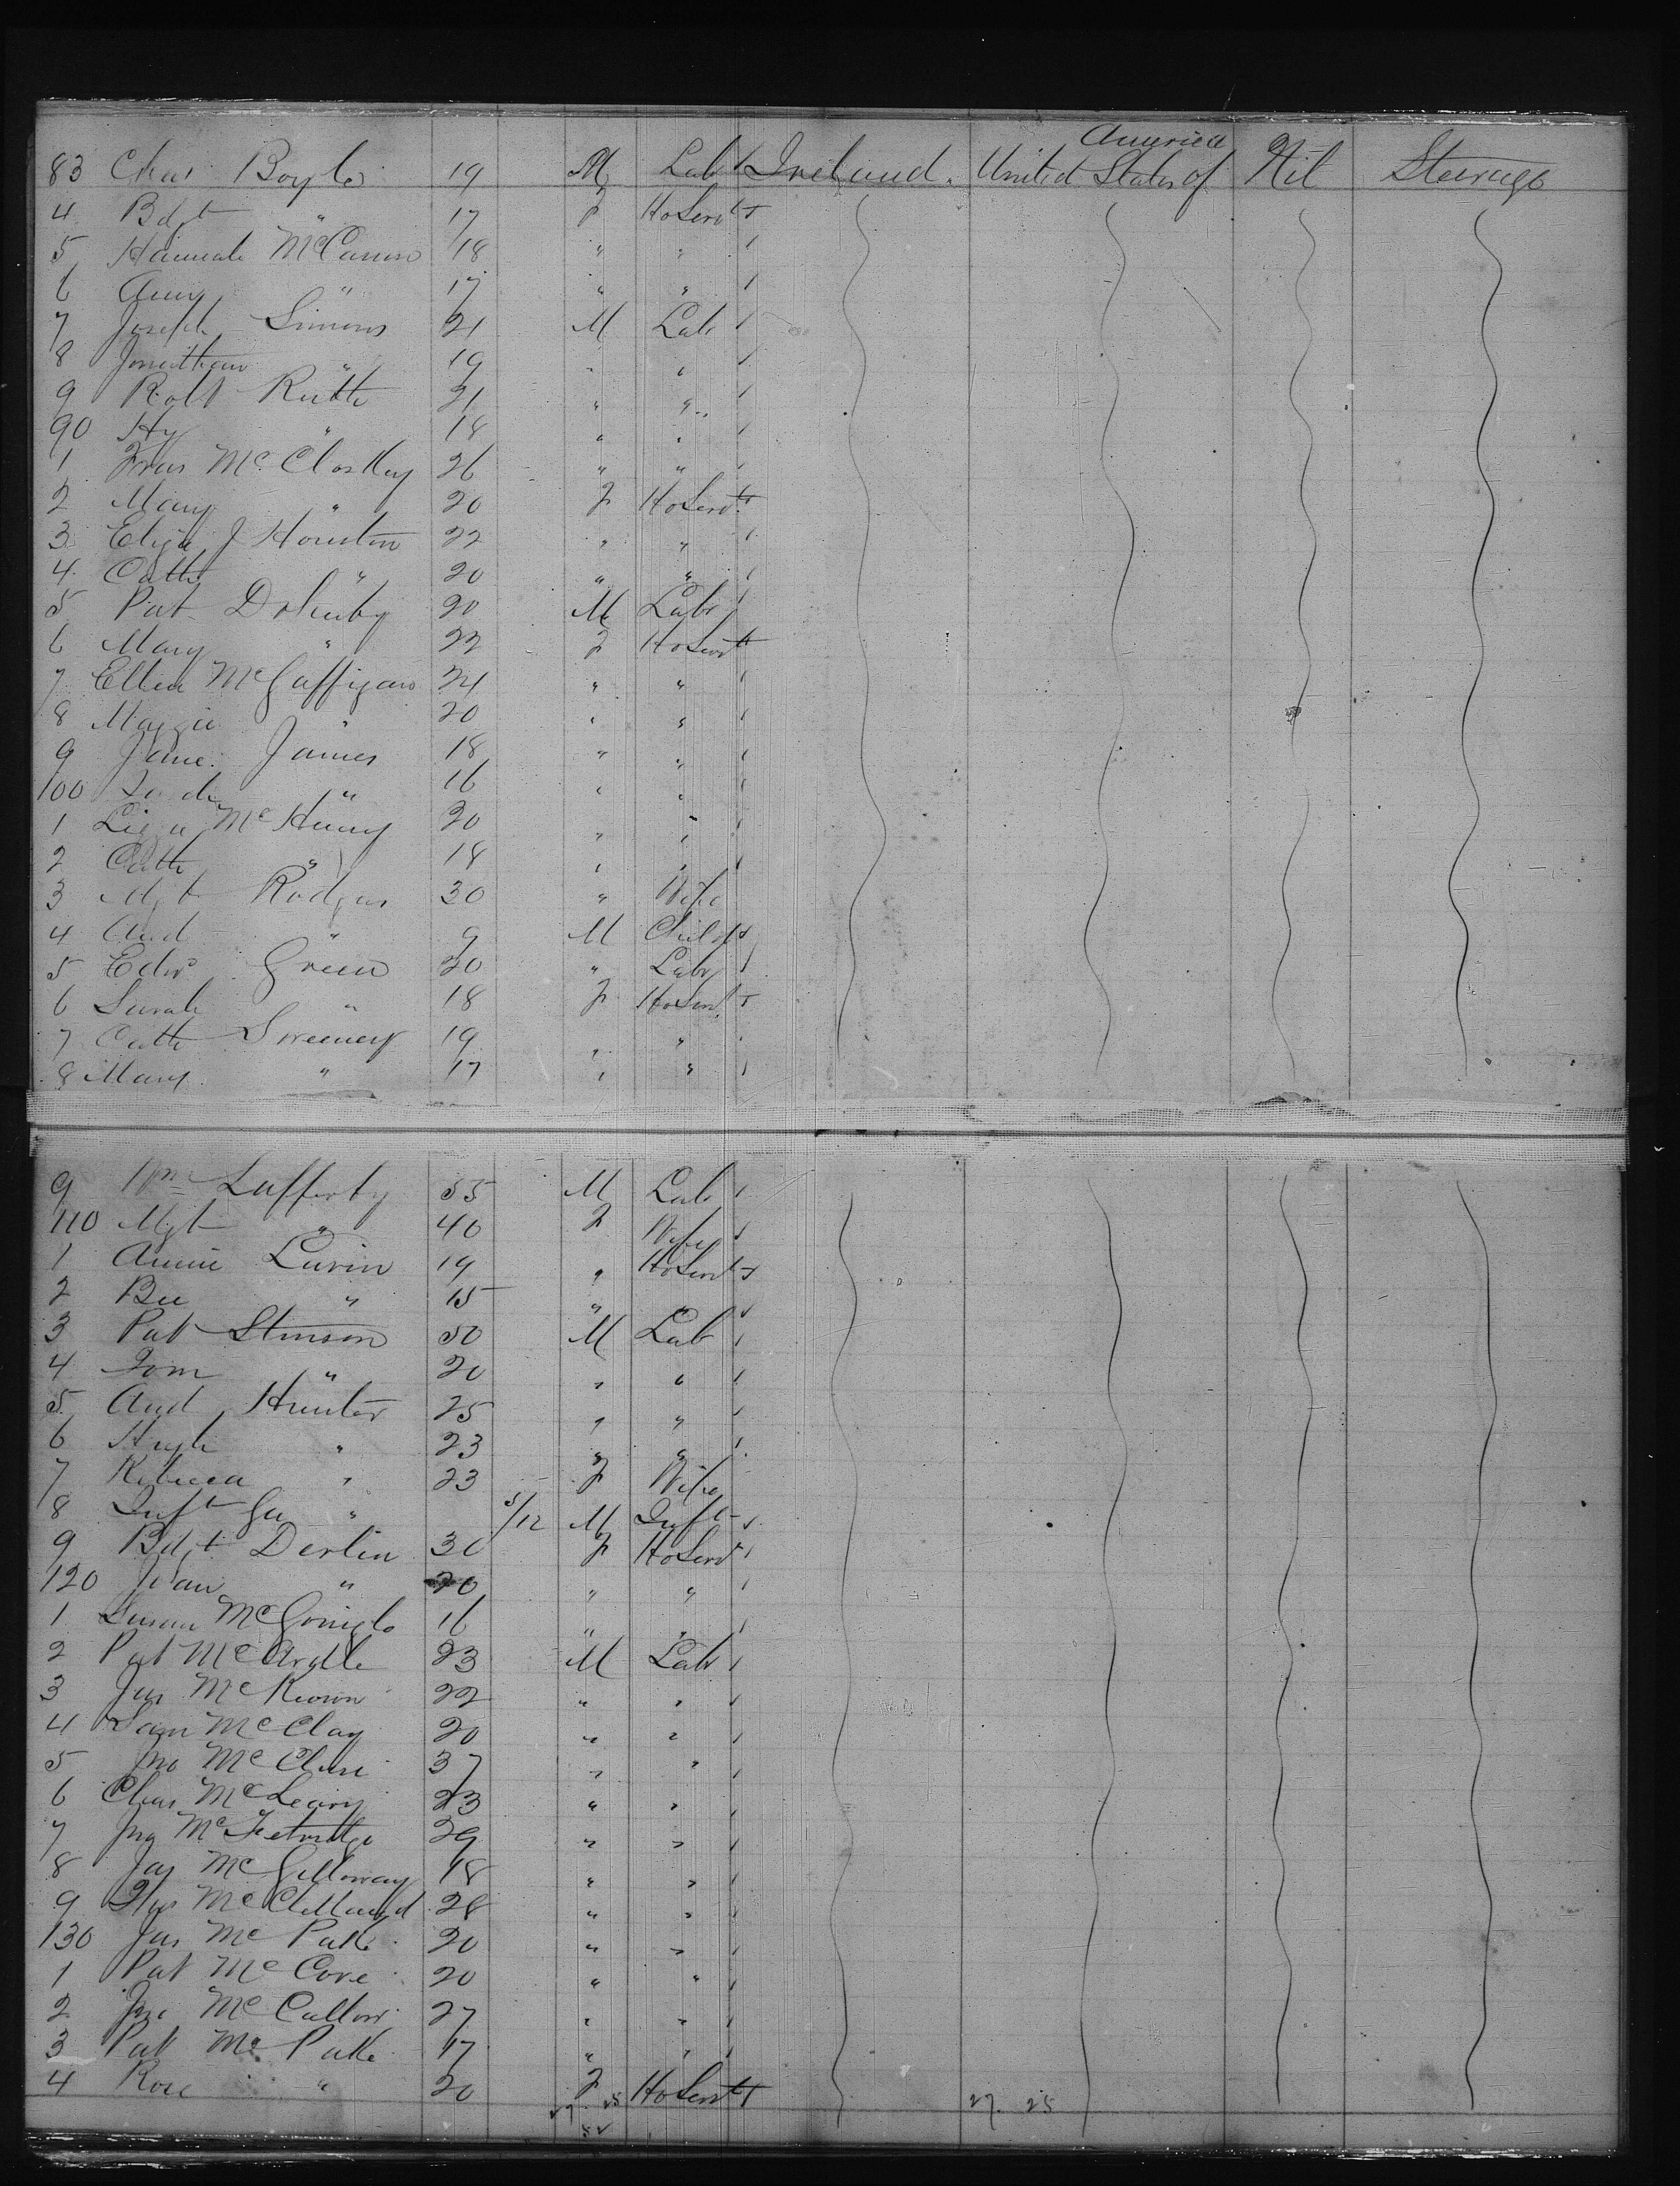 America
83 Chas Boyle 19 M Lab Ireland. United States of Nil Steerage
4 Bdgt " 17 F HoServt
5 Hannah McCann 18 " "
6 Amy " 17 " "
7 Joseph Simons 21 M Lab
8 Jonathan " 19 " "
9 Robt 21 " "
90 Hy " 18 " "
1 Fras McCloskey 26 " "
2 Mary " 20 F HoServt
3 Eliza J Houston 22 " "
4 Cath " 20 " "
5 Pat 20 M Lab
6 Mary " 22 F HoServt
7 Ellen McGaffigan 24 " "
8 Maggie " 20 " "
9 Jane James 18 " "
100 " 16 " "
1 Liza McHenry 20 " "
2 Cath " 18 " "
3 Mgt Rodgers 30 " Wife
4 And " 9 M Child
5 Edwd Green 20 " Lab
6 Sarah " 18 F HoServt
7 Cath Sweeney 19 " "
8 Mary " 17 " "
9 Wm Lafferty 55 M Lab
110 Mgt " 40 F Wife
1 Annie Lavin 19 " HoServt
2 Bee " 15 " "
3 Pat Stinson 50 M Lab
4 Tom " 20 " "
5 And Hunter 25 " "
6 Hugh " 23 " "
7 Rebecca " 23 F Wife
8 Inft Geo " 5/12 M Inft
9 Bdgt Devlin 30 F HoServt
120 " 20 " "
1 Susan McGonigle 16 " "
2 Pat McArdle 23 M Lab
3 Jas McKeown 22 " "
4 Sam McClay 20 " "
5 Jno McClure 37 " "
6 Chas McLeary 23 " "
7 Jno McFetridge 29 " "
8 Jas McGilloway 18 " "
9 McClelland 28 " "
130 Jas McPake 20 " "
1 Pat McCove 20 " "
2 Jno McCallow 27 " "
3 Pat McPake 17 " "
4 Rose " 20 F HoServt
27. 25